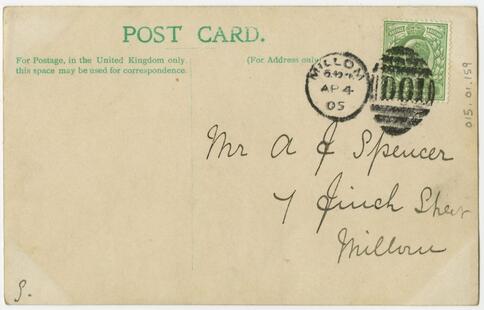 POST CARD.
For Postage, in the United Kingdom only
this space may be used for correspondence.
(For Address only
MILLOM
AP 4
05
D01
Mr A J Spencer
7 Finch Street
Millom
S.
015.01.159